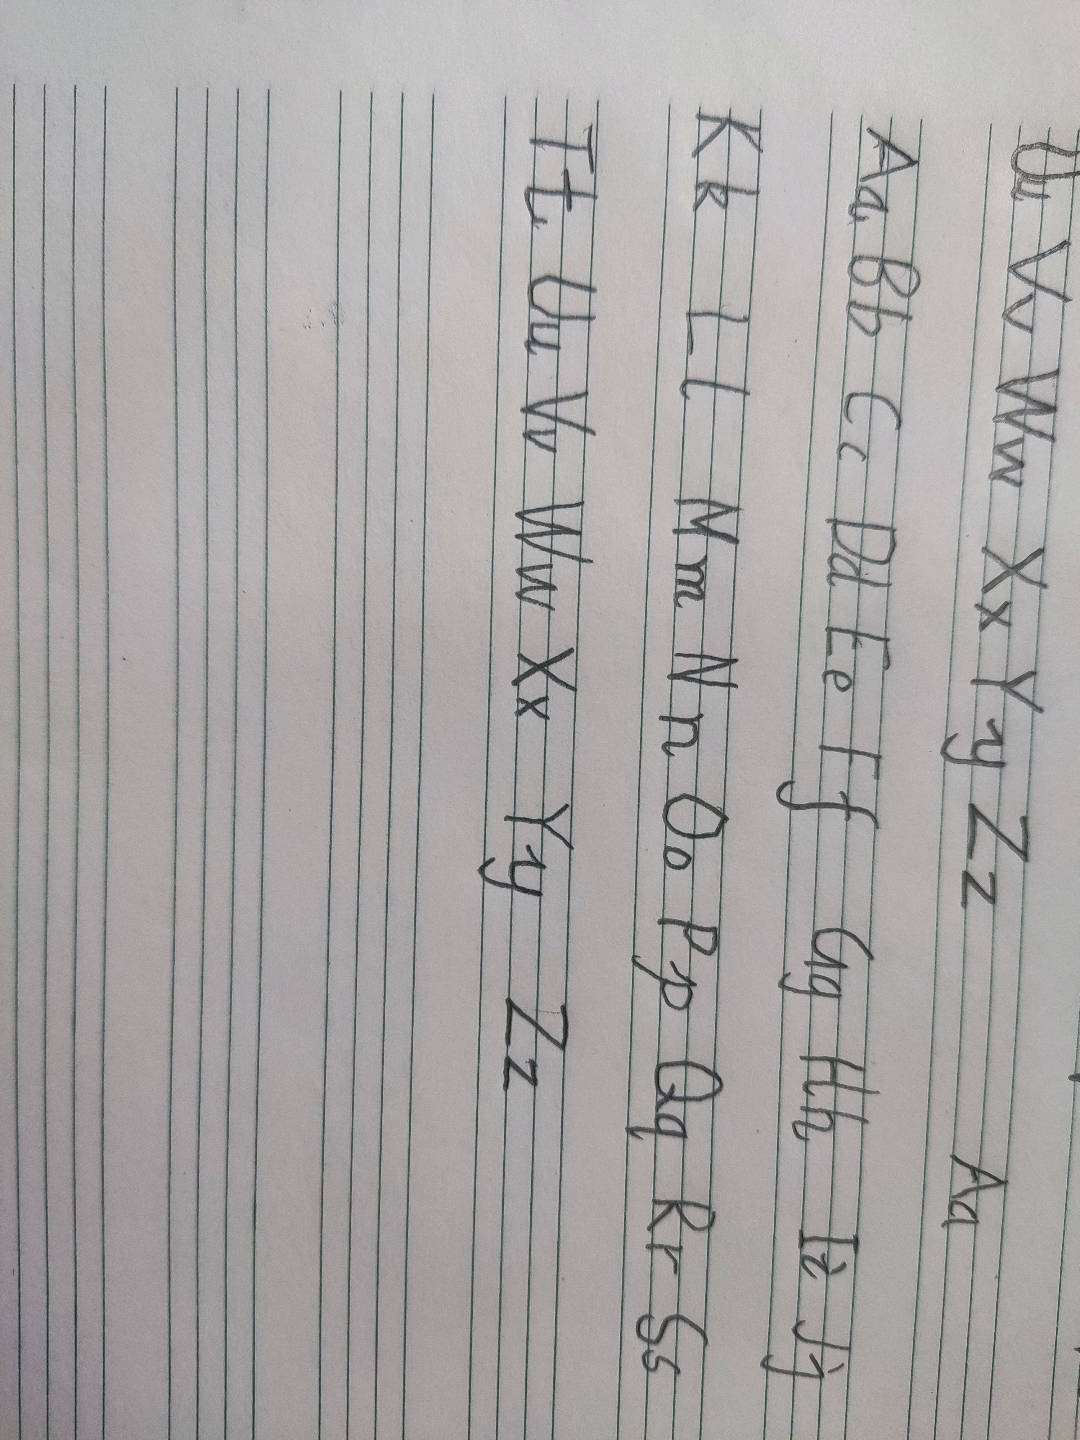 Uu Vv Ww Xx Yy Zz Aa
Aa Bb Cc Dd Ee Ff Gg Hh Ii Jj
Kk Ll Nm Nn Oo Pp Qq Rr Ss
Tt Uu Vv Ww Xx Yy Zz